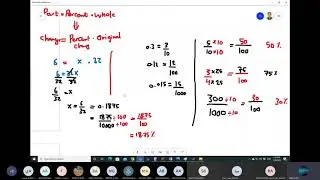 Part = Percent · Whole
change = Percent · Original
chang
6 = x · 32
6/32 = 32x/32
6/32 = x
x = 6/32 = 0.1875
= 1875/10000 ÷100/÷100 = 18.75/100
= 18.75%
0.3 = 3/10
0.12 = 12/100
0.015 = 15/1000
5×10/10×10 = 50/100 50%
3×25/4×25 = 75/100 75%
300÷10/1000÷10 = 30/100 30%